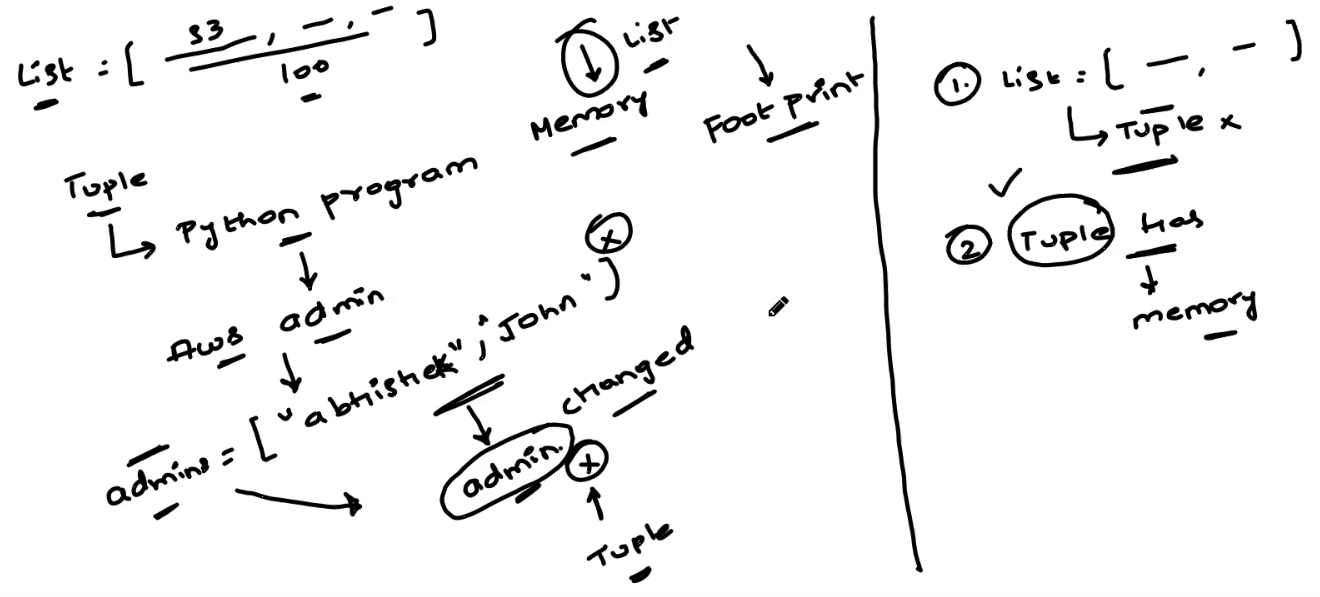 List = [ S3, —, — ]
100
List
Memory
Foot print
Tuple
Python program
Aws admin
admins = ["abhishek", "John"]
x
changed
admin
x
Tuple
1. List = [ —, — ]
Tuple x
2 Tuple Has
memory